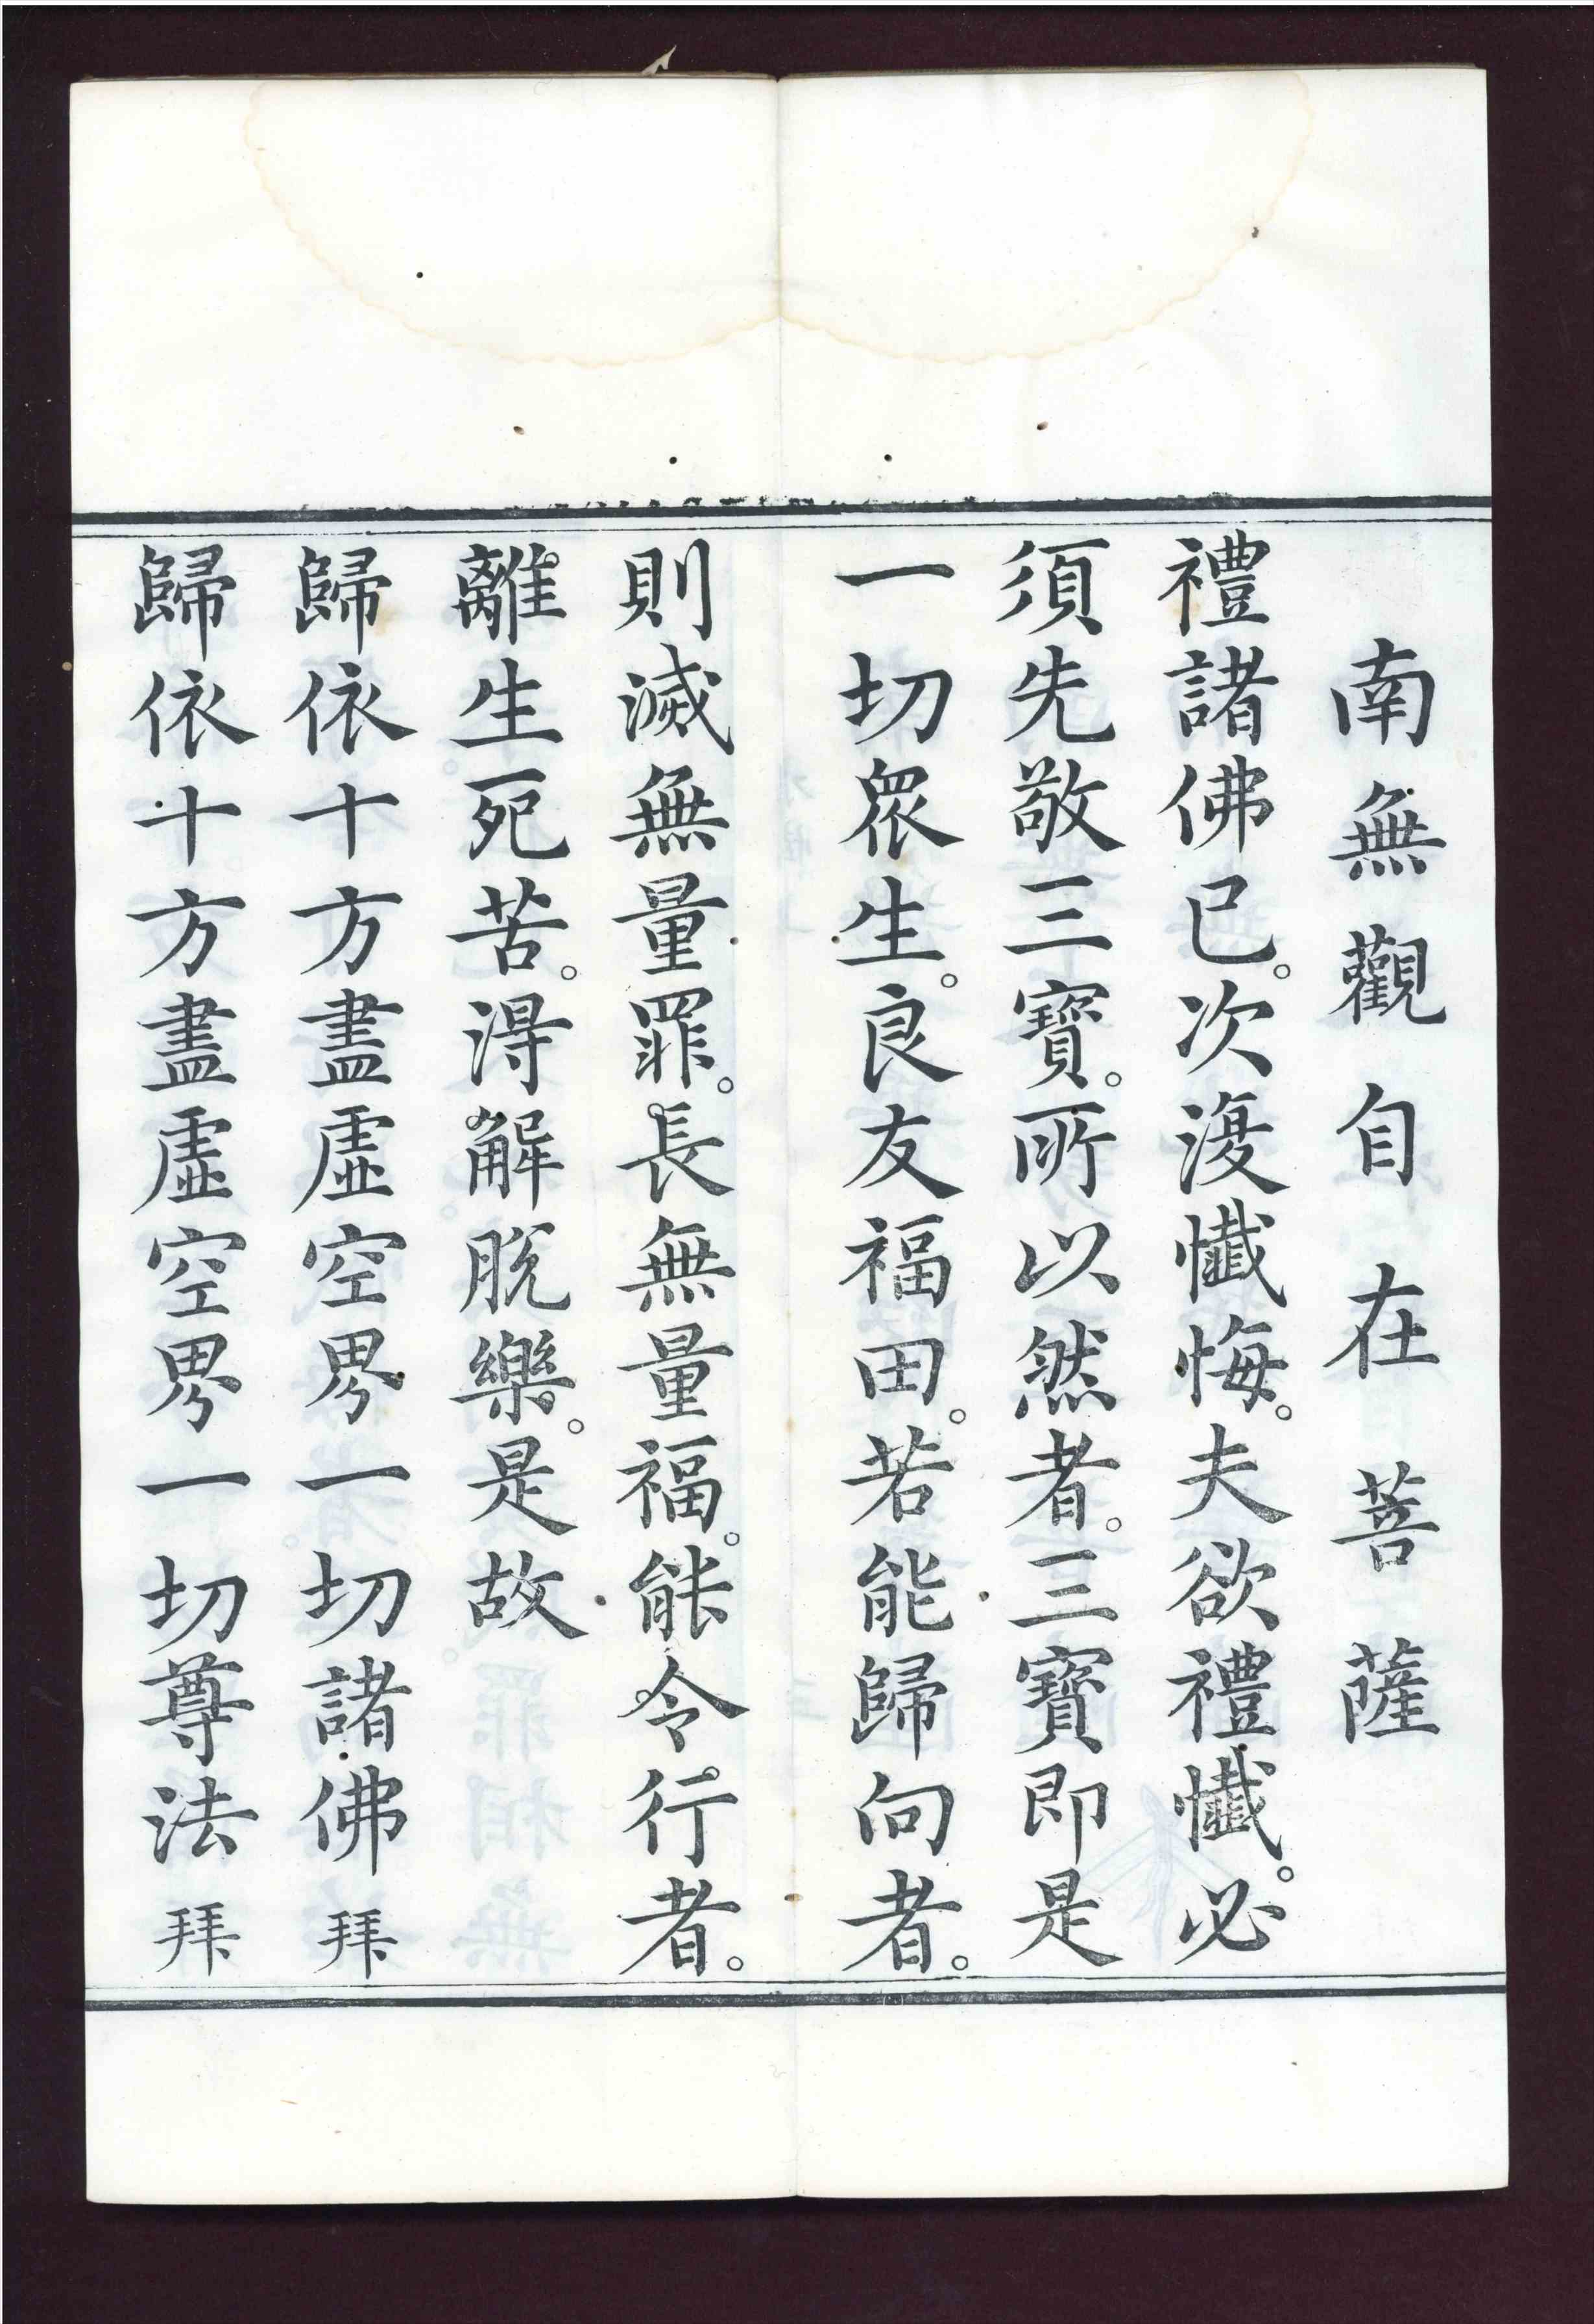 南無觀自在菩薩
禮諸佛已。次復懺悔。夫欲禮懺。必
須先敬三寶。所以然者。三寶即是
一切衆生。良友福田。若能歸向者。
則滅無量罪。長無量福。能令行者。
離生死苦。得解脫樂。是故
歸依十方盡虛空界一切諸佛 拜
歸依十方盡虛空界一切尊法 拜